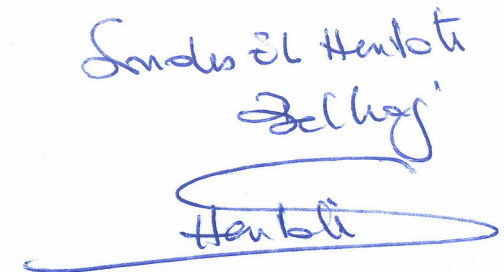 Sondes El Hentati
Belhaj
Hentati